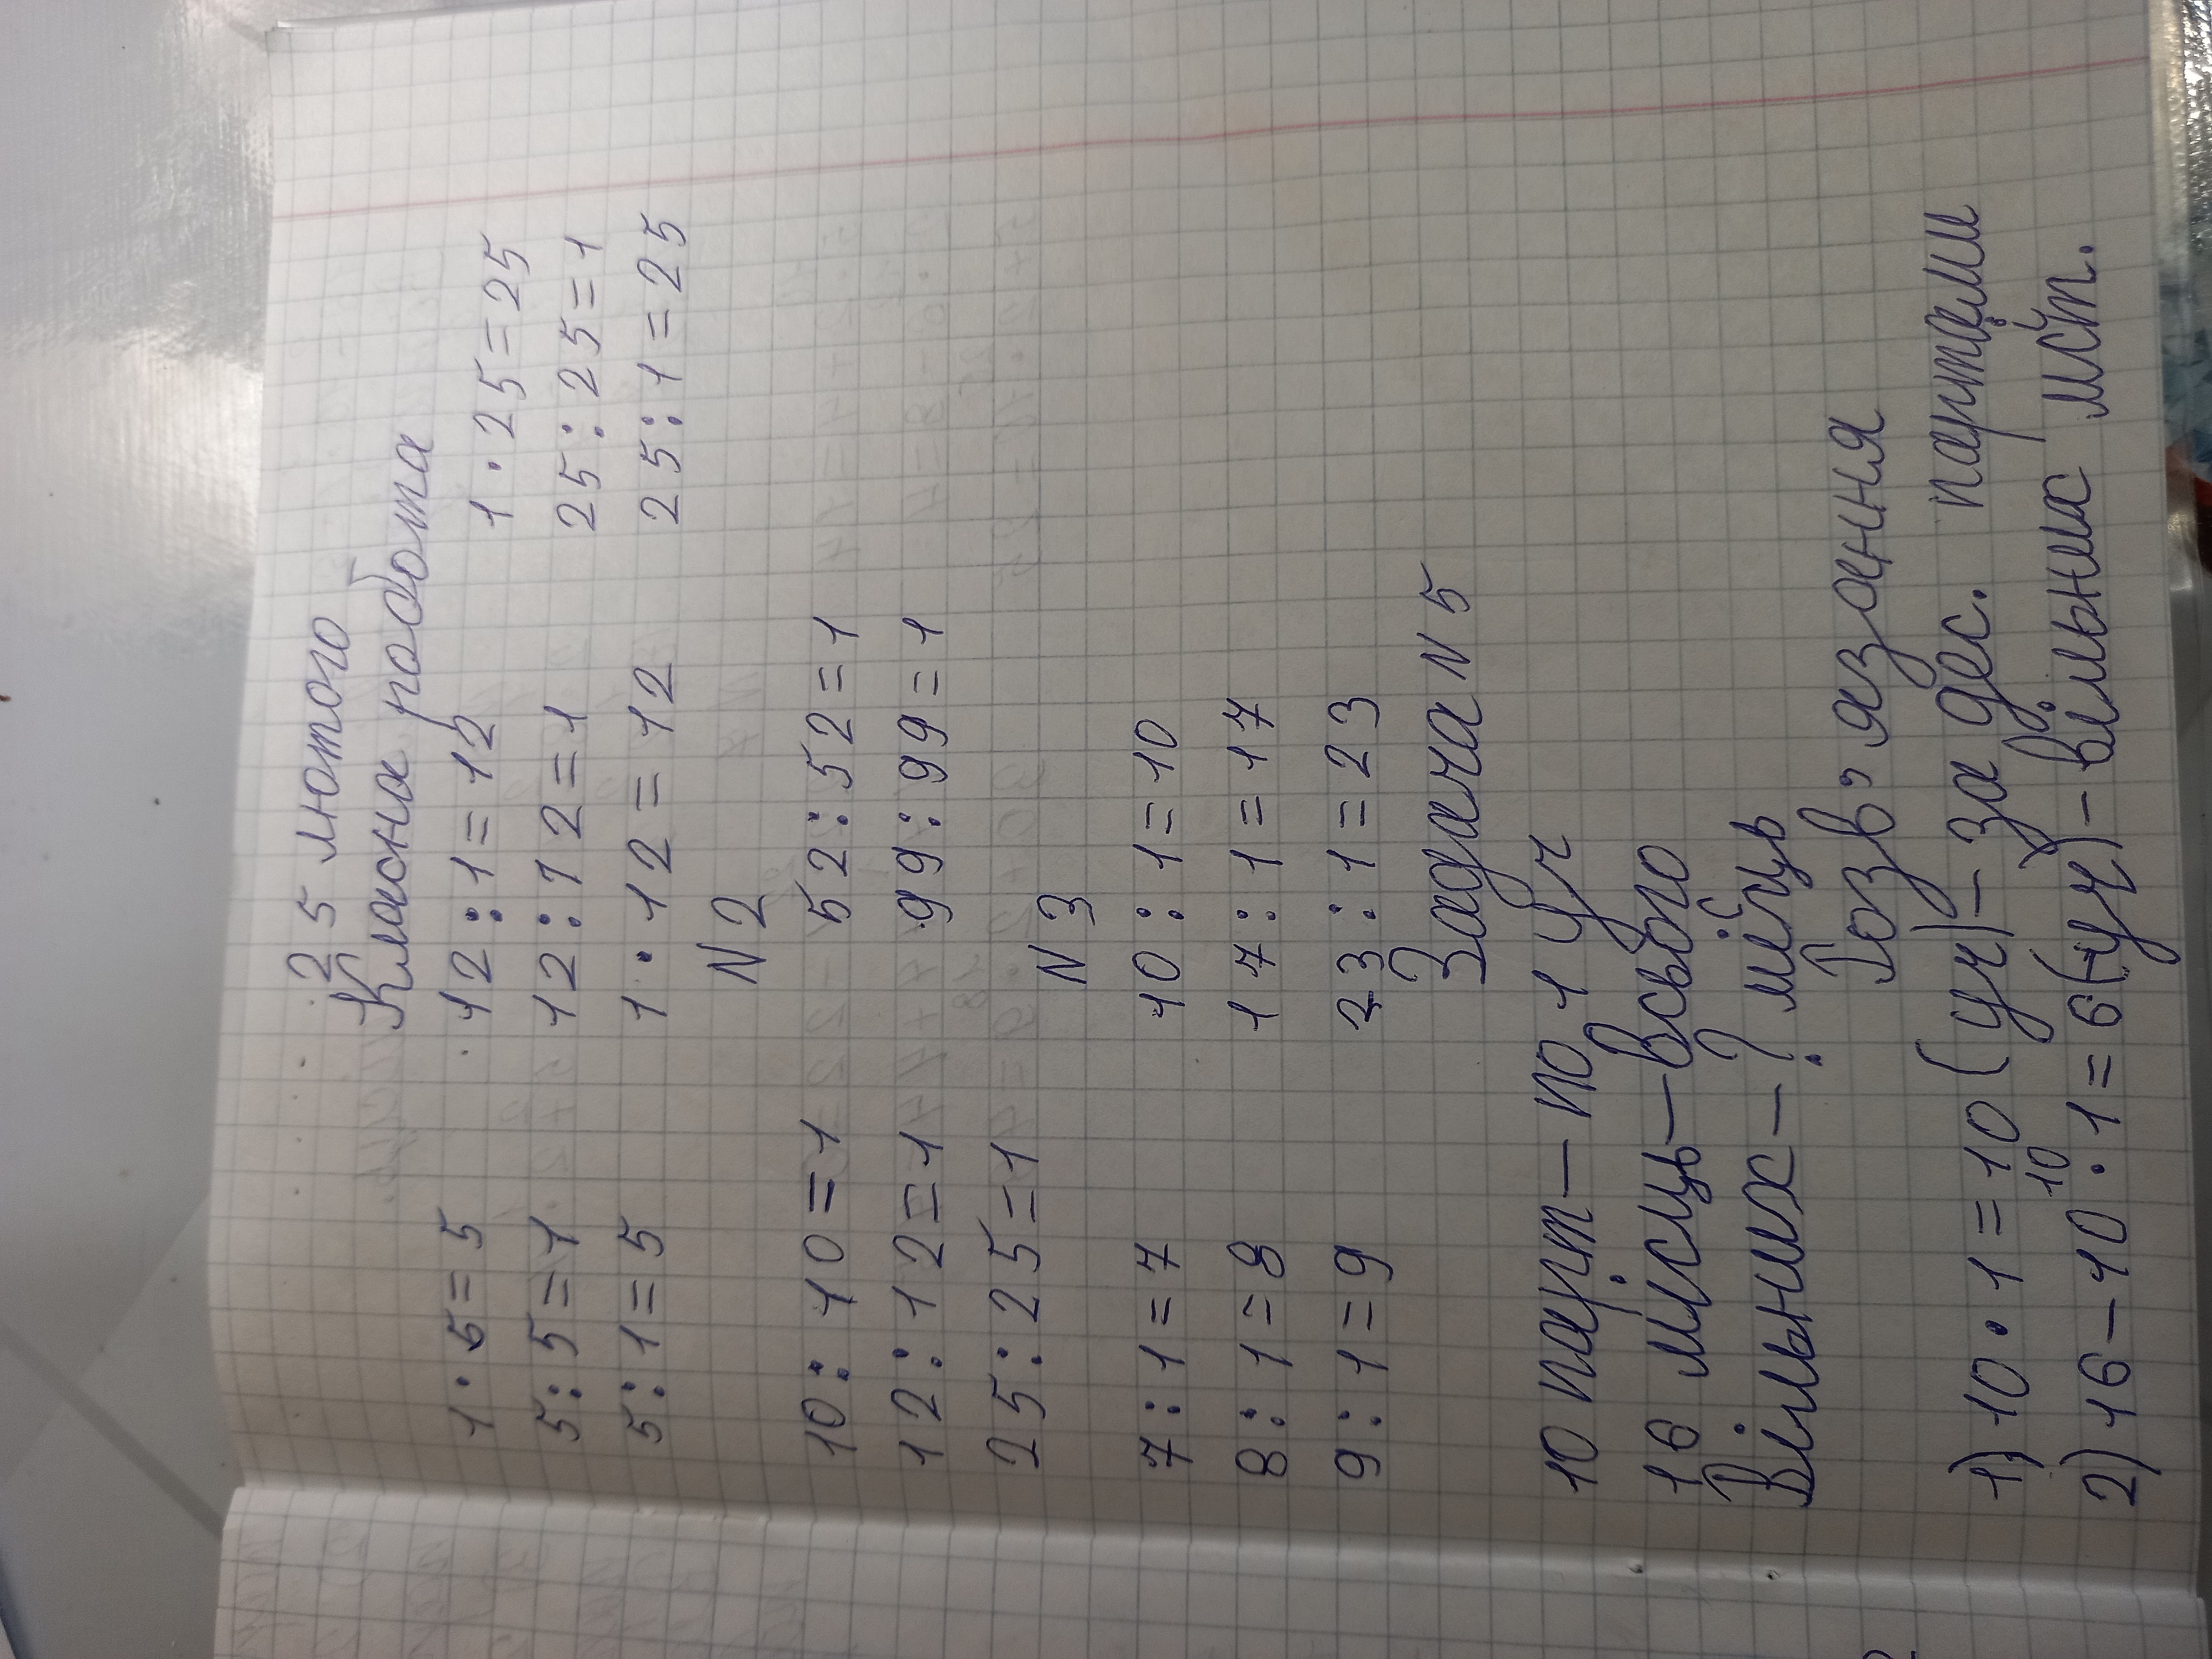 25 лютого
Класна робота
1 · 5 = 5 12 : 1 = 12 1 · 25 = 25
5 : 5 = 1 12 : 12 = 1 25 : 25 = 1
5 : 1 = 5 1 · 12 = 12 25 : 1 = 25
N 2
10 : 10 = 1 52 : 52 = 1
12 : 12 = 1 99 : 99 = 1
25 : 25 = 1
N 3
7 : 1 = 7 10 : 1 = 10
8 : 1 = 8 17 : 1 = 17
9 : 1 = 9 23 : 1 = 23
Задача N 5
10 парт – по 1 уч
16 місць – всього
Вільних – ? місць
Розв'язання
1) 10 · 1 = 10 (уч) – за дес. партами
10
2) 16 – 10 · 1 = 6 (уч) – вільних міст.